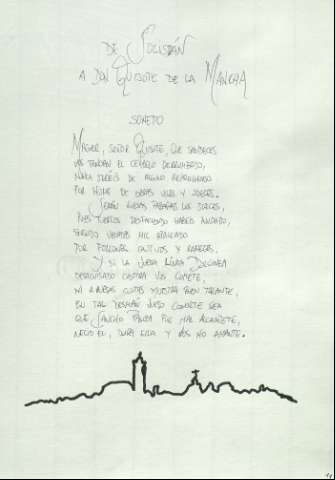 DE SOLISDÁN
A DON QUIJOTE DE LA MANCHA
SONETO
MAGUER, SEÑOR QUIJOTE, QUE SANDECES
VOS TENGAN EL CERBELO DERRUMBADO,
NUNCA SERÉIS DE ALGUNO REPROCHADO
POR HOME DE OBRAS VILES Y SOECES.
SERÁN VUESAS FAZAÑAS LOS JOECES,
PUES TUERTOS DESFACIENDO HABÉIS ANDADO,
SIENDO VEGADAS MIL APALEADO
POR FOLLONES CAUTIVOS Y RAHECES.
Y SI LA VUESA LINDA DULCINEA
DESAGUISADO CONTRA VOS COMETE,
NI A VUESAS CUITAS MUESTRA BUEN TALANTE,
EN TAL DESMÁN VUESO CONORTE SEA
QUE SANCHO PANZA FUE MAL ALCAGÜETE,
NECIO ÉL, DURA ELLA Y VOS NO AMANTE.